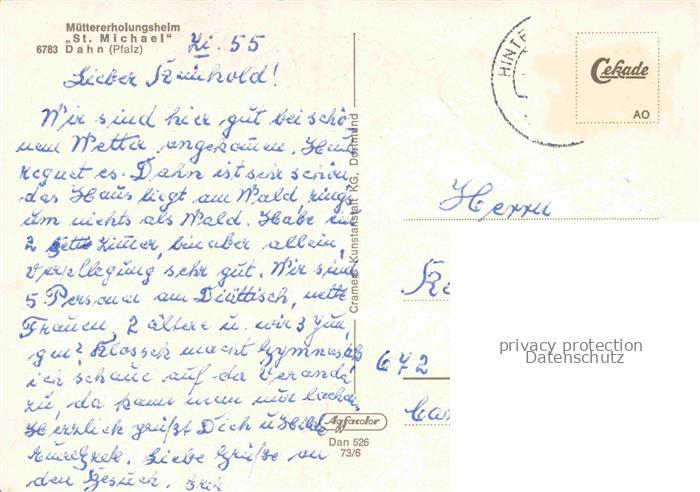 Müttererholungsheim
„St. Michael"
6783 Dahn (Pfalz)
Zi. 55
Lieber Reinhold!
Wir sind hier gut bei schö-
nem Wetter angekommen. Heute
regnet es. Dahn ist sehr schön,
das Haus liegt am Wald, rings
um nichts als Wald. Habe ein
2 Bett Zimmer, bin aber allein,
Verpflegung sehr gut. Wir sind
5 Personen am Diättisch, nette
Frauen, 2 ältere u. wir 3 Jun,
gen? Klossek macht Gymnastik
ich schaue auf da Veranda
zu, da kann man nur lachen.
Herzlich grüßt Dich u Hilde
Liebe Grüße an
den Besuch.
Cramers Kunstanstalt KG, Dortmund
Agfacolor
Dan 526
73/6
HINTE
Cekade
AO
Herrn
672
privacy protection
Datenschutz